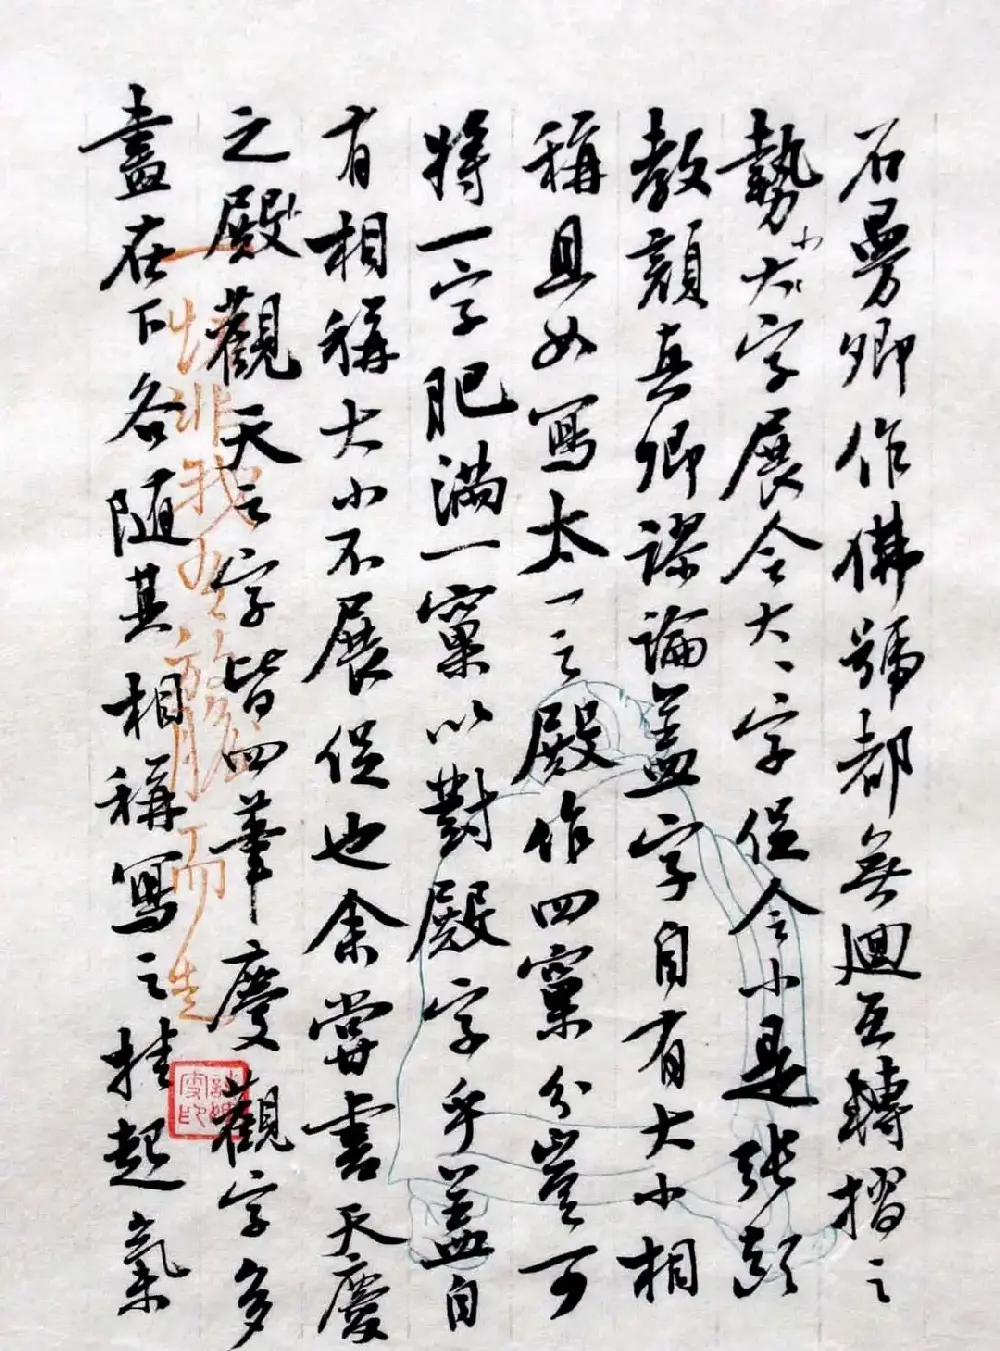 石曼卿作佛號都無迴互轉摺之
勢小字展令大、字促令小是張顛
教顏真卿謬論蓋字自有大小相
稱且如寫太一之殿作四窠分豈可
將一字肥滿一窠以對殿字乎蓋自
有相稱大小不展促也余嘗書天慶
之殿觀天之字皆四筆慶觀字多
畫在下各隨其相稱寫之挂起氣